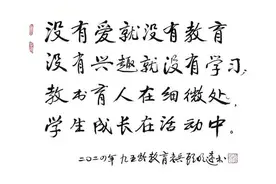 没有爱就没有教育
没有兴趣就没有学习,
教书育人在细微处,
学生成长在活动中。
二〇二〇年 九五龄教育老兵 明远书